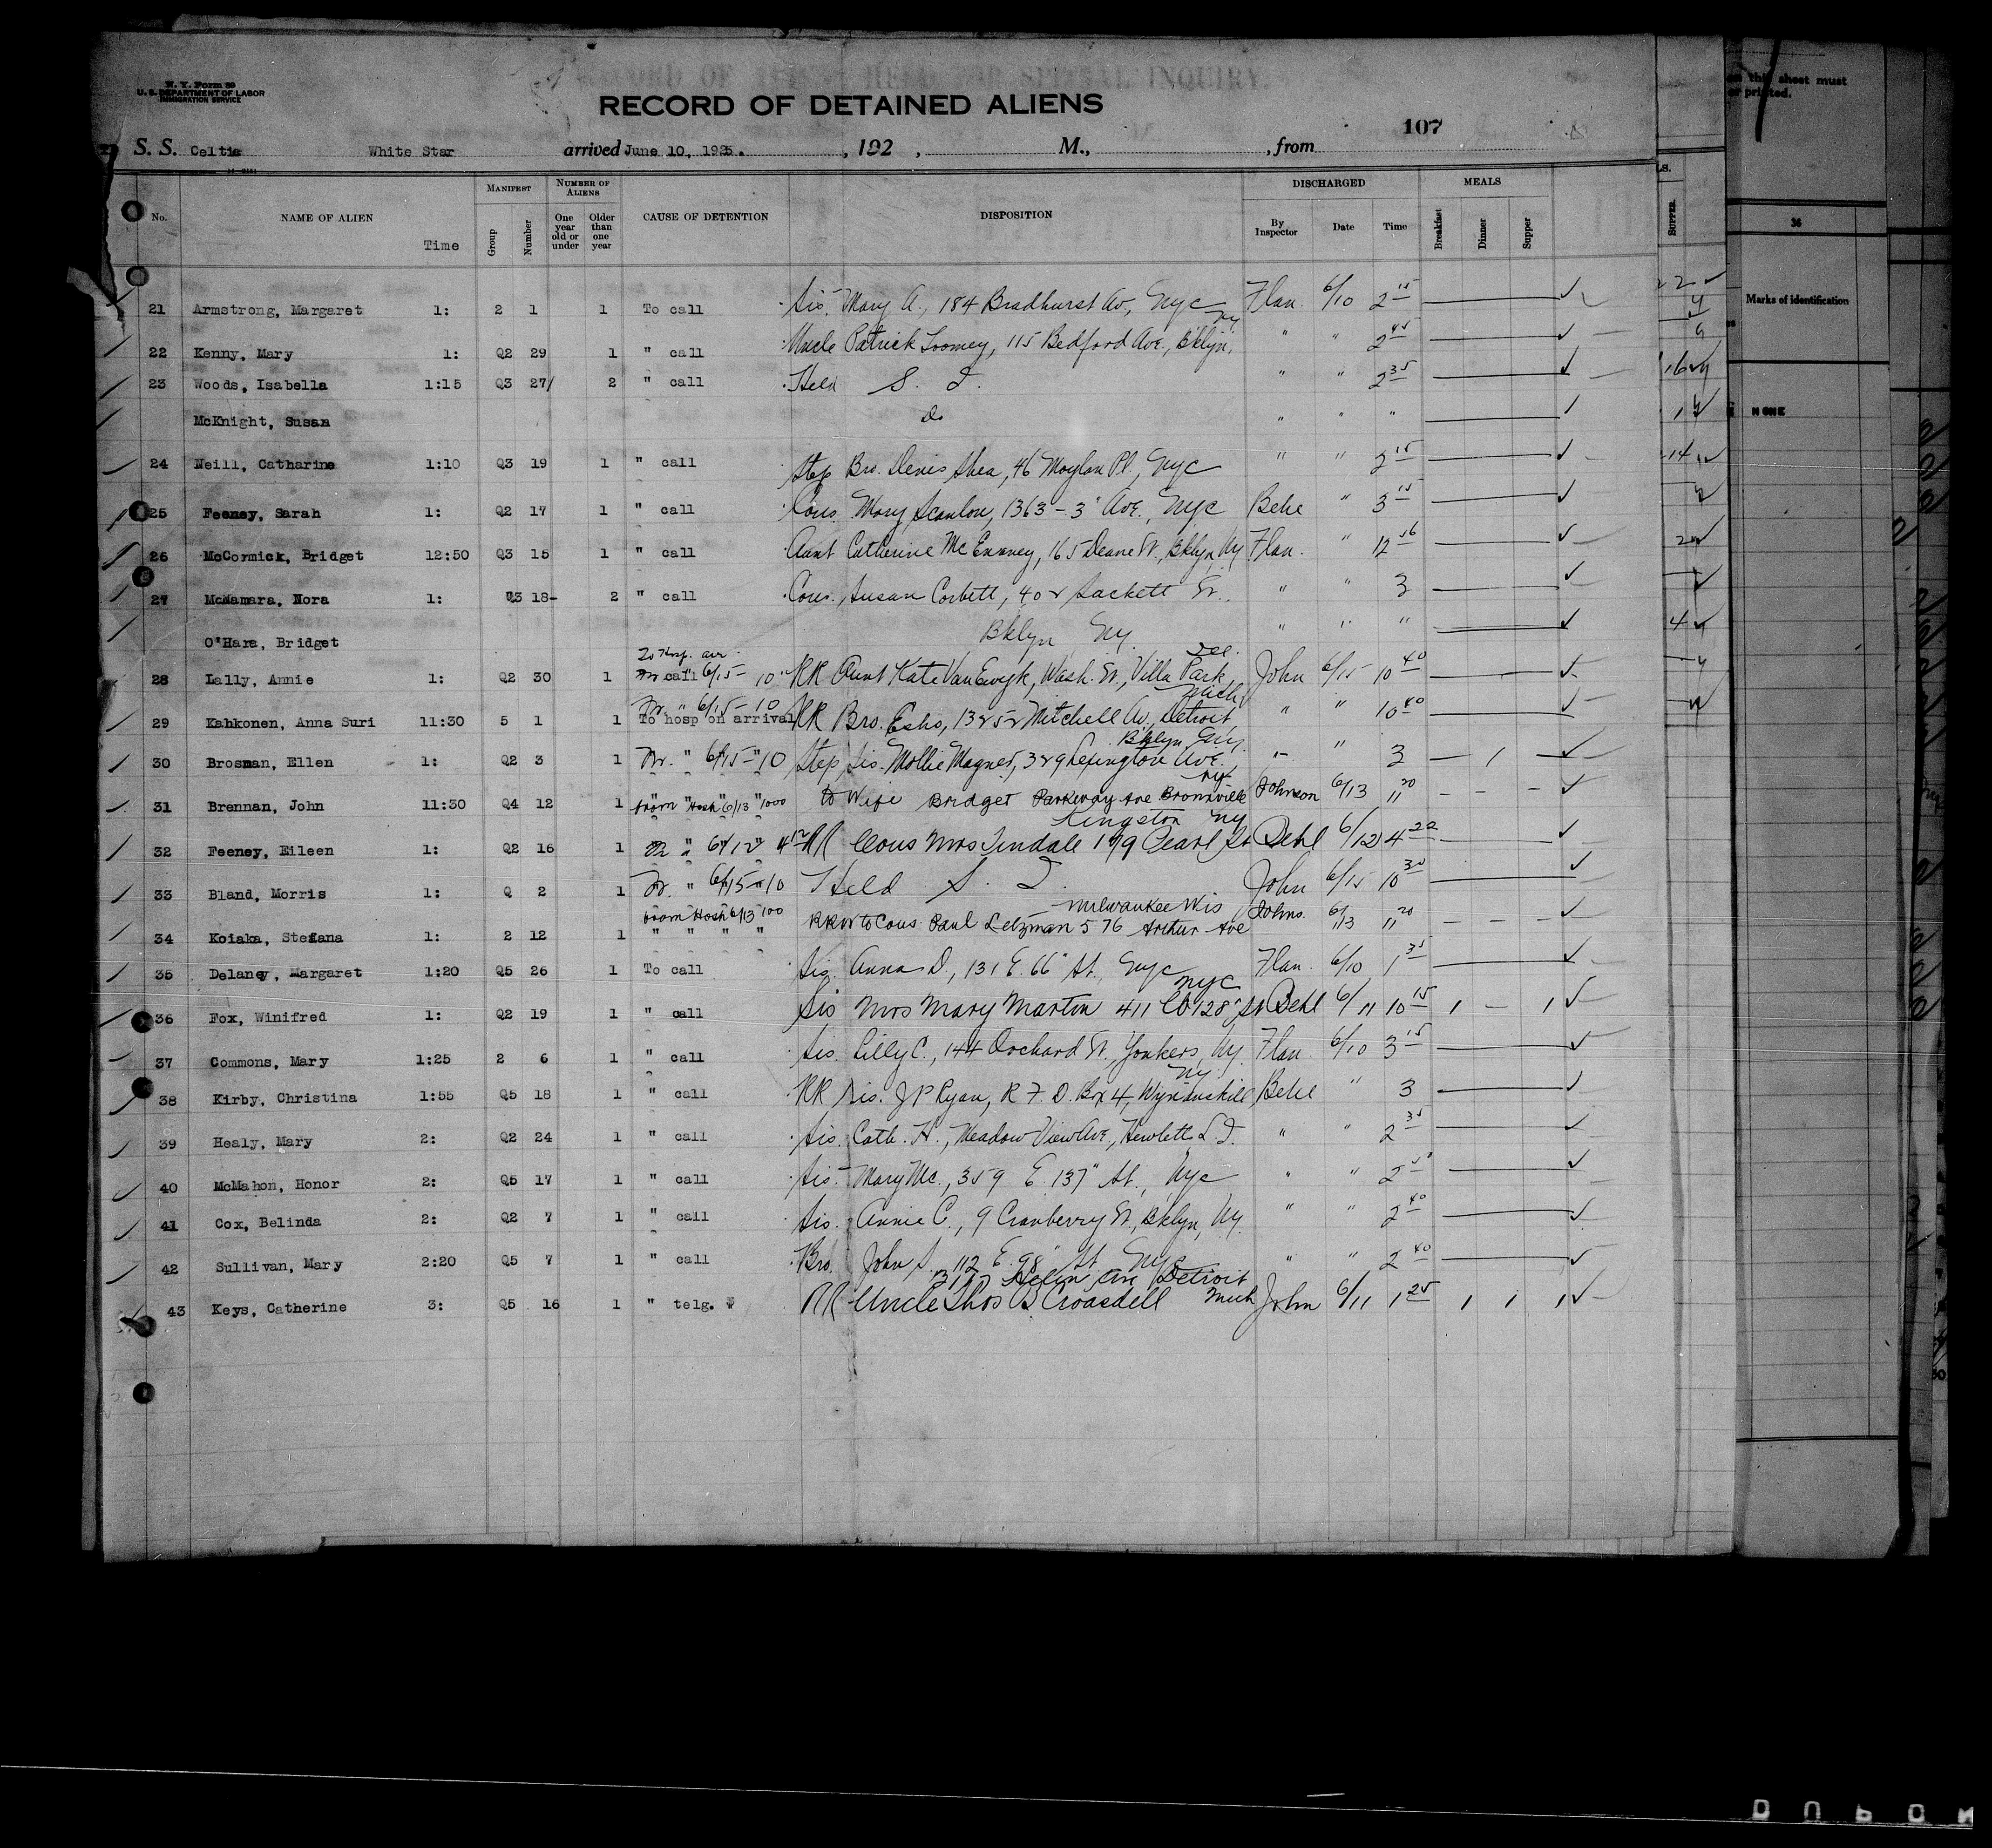 N. Y. Form 89
U. S. DEPARTMENT OF LABOR
IMMIGRATION SERVICE
RECORD OF DETAINED ALIENS
107
S. S. Celtic White Star arrived June 10, 1925. , 192 , M., , from
No. NAME OF ALIEN Time MANIFEST Group Number NUMBER OF ALIENS One year old or under Older than one year CAUSE OF DETENTION DISPOSITION DISCHARGED By Inspector Date Time MEALS Breakfast Dinner Supper
21 Armstrong, Margaret 1: 2 1 1 To call Sis. Mary A., 184 Bradhurst Av., NYC Flan. 6/10 2 15
22 Kenny, Mary 1: Q2 29 1 " call Uncle Patrick Toomey, 115 Bedford Ave., Bklyn, NY " " 2 45
23 Woods, Isabella 1:15 Q3 27/ 2 " call Held S. I. " " 2 35
McKnight, Susan Do " " "
24 Neill, Catharine 1:10 Q3 19 1 " call Step Bro. Denis Shea, 46 Moylan Pl., NYC " " 2 15
25 Feeney, Sarah 1: Q2 17 1 " call Cous. Mary Scanlon, 1363 - 3" Ave., NYC " 3 15
26 McCormick, Bridget 12:50 Q3 15 1 " call Aunt Catherine Mc Enaney, 165 Deane St., Bklyn, NY Flan. " 12 56
27 McNamara, Nora 1: Q3 18- 2 " call Cous. Susan Corbett, 402 Sackett St., " " 3
O'Hara, Bridget Bklyn NY. " " "
28 Lally, Annie 1: Q2 30 1 To Hosp. arr. call 6/15 - 10 RR Aunt Kate Van Ewyk, Wash. St., Villa Park, Ill. John 6/15 10 40
29 Kahkonen, Anna Suri 11:30 5 1 1 To hosp on arrival Fr. " 6/15 - 10 RR Bro. Esko, 13252 Mitchell Av., Detroit, Mich " " 10 40
30 Brosnan, Ellen 1: Q2 3 1 Fr. " 6/15 - 10 Step Sis. Mollie Magner, 329 Lexington Ave., Bklyn NY. " " 3 — 1 —
31 Brennan, John 11:30 Q4 12 1 from Hosp 6/13 1000 to Wife Bridget Parkway Ave Bronxville NY Johnson 6/13 11 20 - - -
32 Feeney, Eileen 1: Q2 16 1 " 6/12 4 12 RR Cous Mrs Tindale 179 Pearl St Kingston NY 6/12 4 22
33 Bland, Morris 1: Q 2 1 Fr. " 6/15 - 10 Held S. I. John 6/15 10 30
34 Koiaka, Stefana 1: 2 12 1 from Hosp 6/13 100 RRW to Cous Paul Letzman 576 Arthur Ave Milwaukee Wis Johns. 6/13 11 20 - - -
35 Delaney, Margaret 1:20 Q5 26 1 To call Sis. Anna D, 131 E. 66" St., NYC Flan. 6/10 1 35
36 Fox, Winifred 1: Q2 19 1 " call Sis Mrs Mary Martin 411 W 128" St NYC 6/11 10 15 1 - 1
37 Commons, Mary 1:25 2 6 1 " call Sis. Lilly C., 144 Orchard St., Yonkers, NY. Flan. 6/10 3 15
38 Kirby, Christina 1:55 Q5 18 1 " call RR Sis. J P Ryan, R. F. D. Box 4, Wynantskill, NY " 3
39 Healy, Mary 2: Q2 24 1 " call Sis. Cath. H., Meadow View Ave., Hewlett L. I. " " 2 35
40 McMahon, Honor 2: Q5 17 1 " call Sis. Mary Mc., 359 E. 137" St., NYC " " 2
41 Cox, Belinda 2: Q2 7 1 " call Sis. Annie C., 9 Cranberry St., Bklyn, NY. " " 2 40
42 Sullivan, Mary 2:20 Q5 7 1 " call Bro. John S., 112 E. 98" St. NYC " " 2 40
43 Keys, Catherine 3: Q5 16 1 " telg. RR Uncle Thos B Croasdell Helen Ave Detroit Mich John 6/11 1 25 1 1 1
on this sheet must
or printed.
36
Marks of identification
NONE
SUPPER.